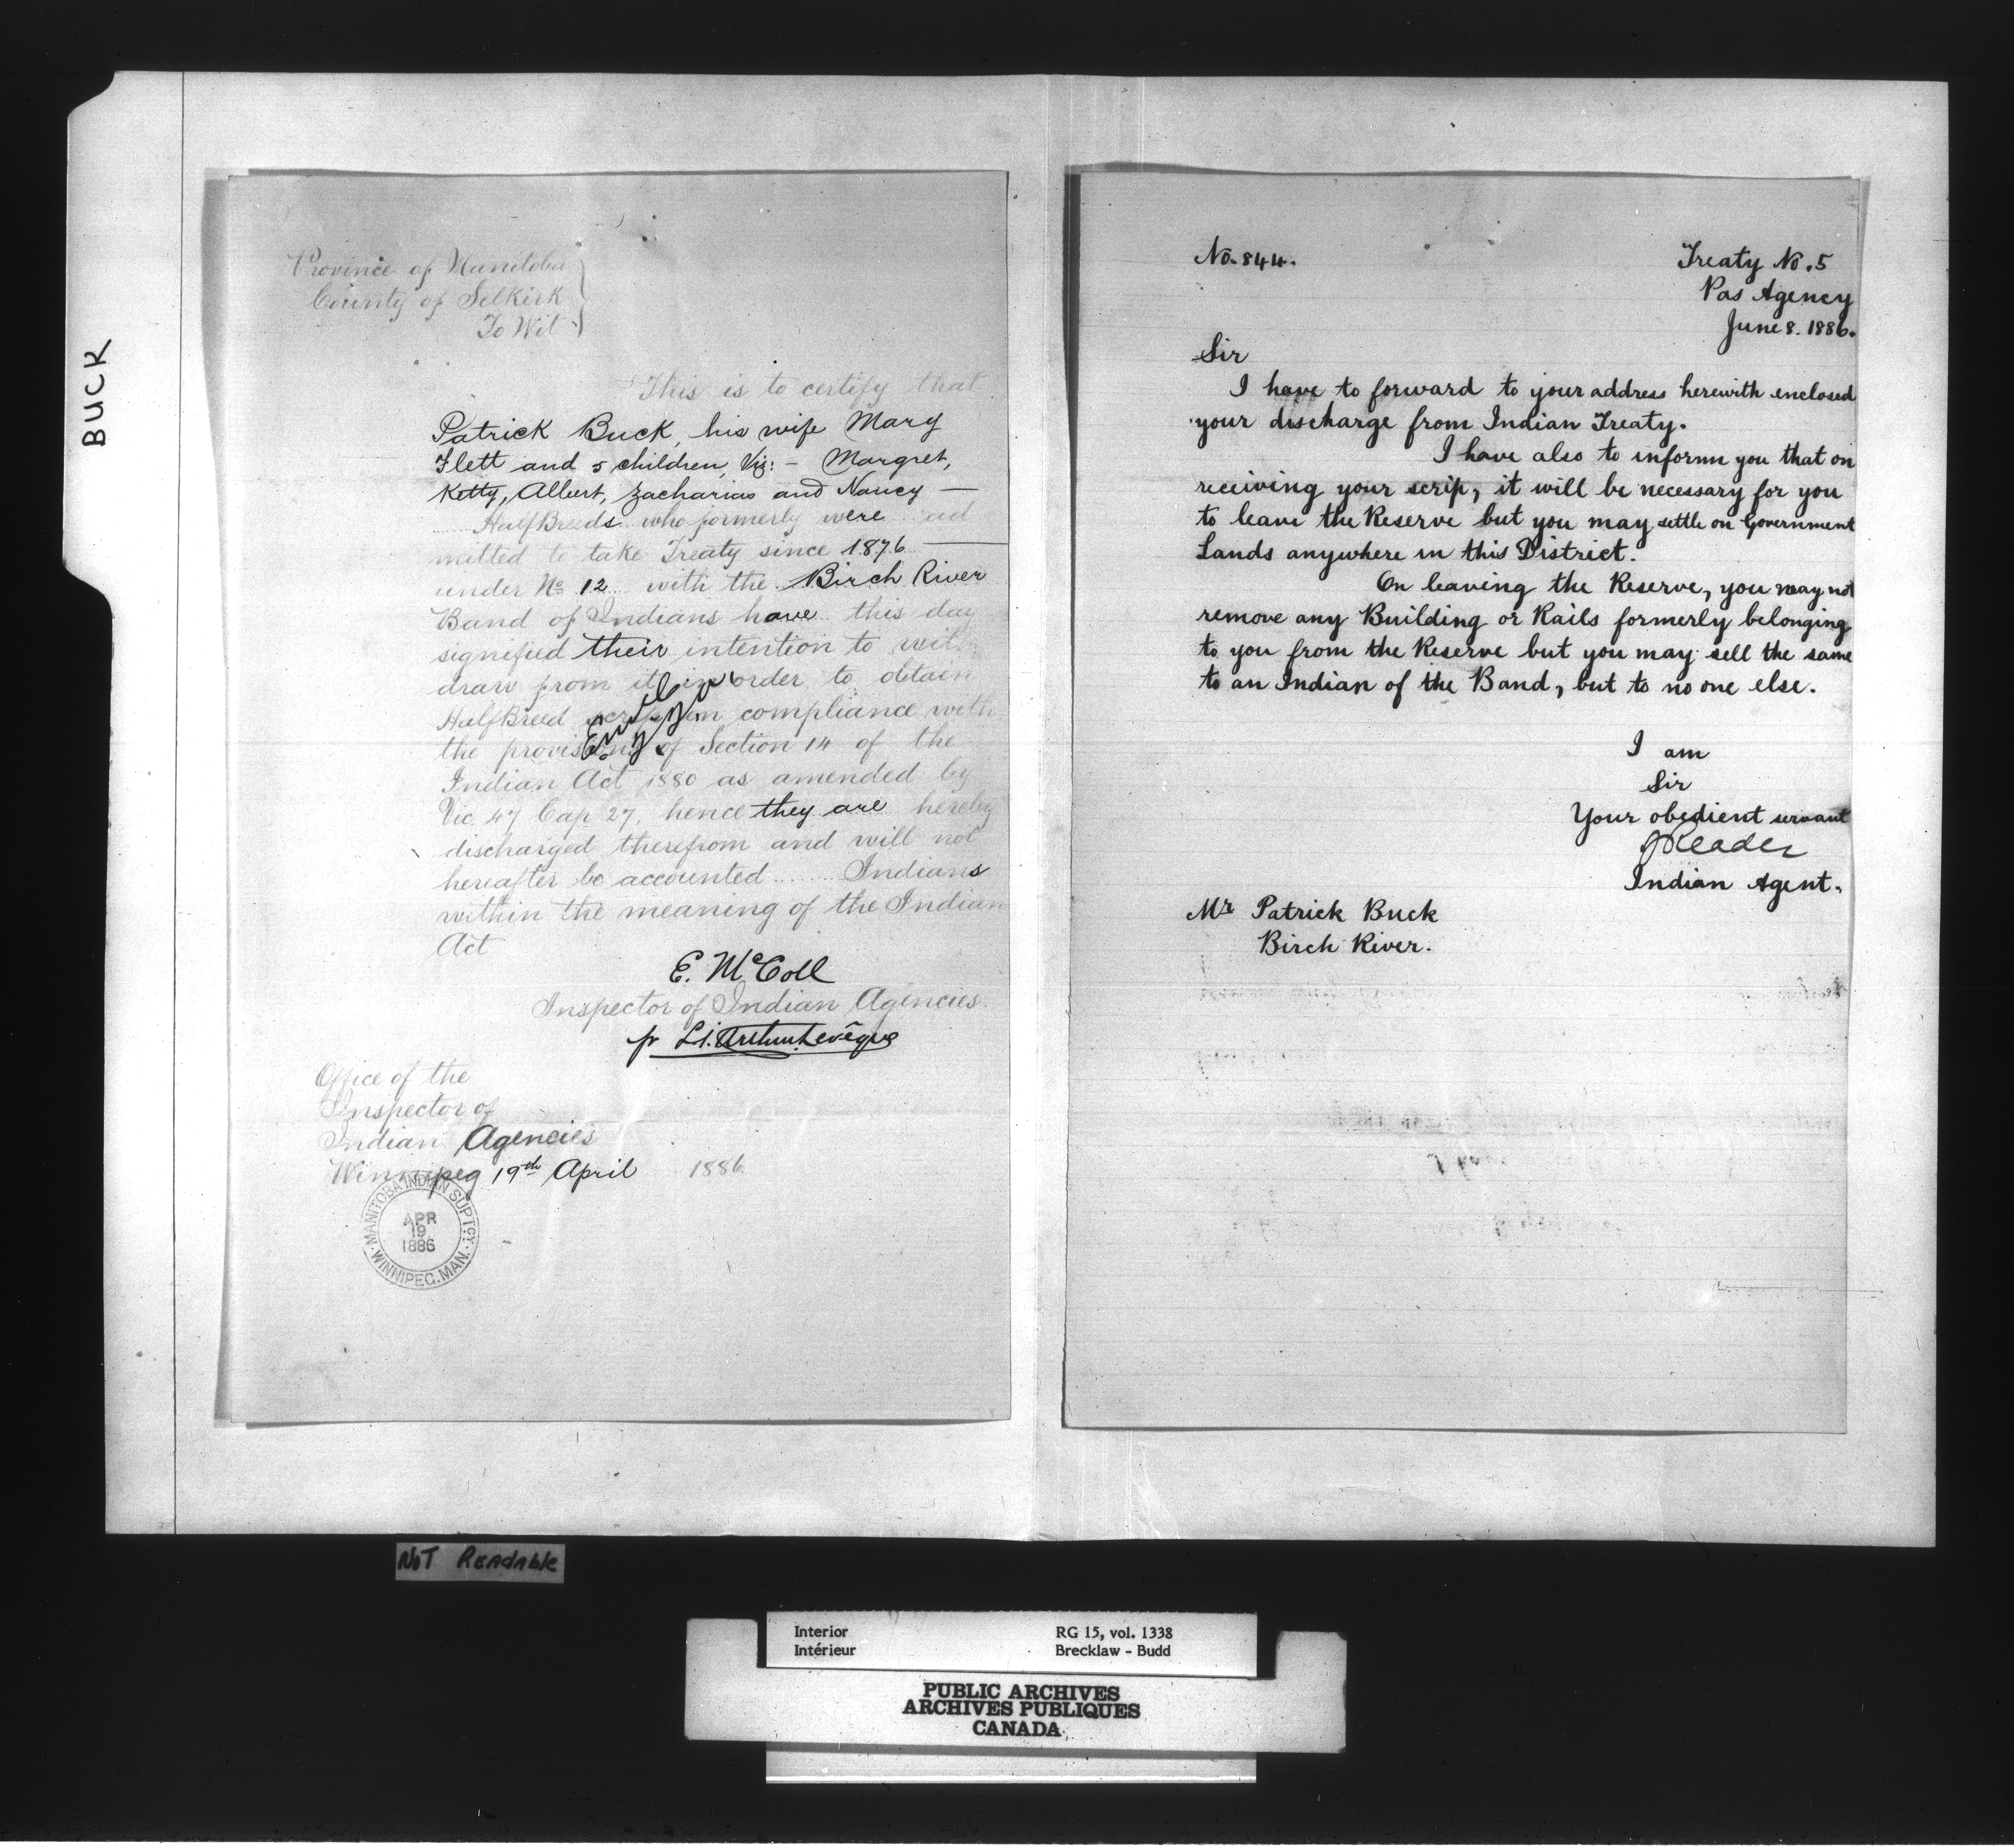 BUCK
Province of Manitoba
County of Selkirk
To Wit
This is to certify that
Patrick Buck, his wife Mary
Flett and 5 children, Viz: - Margret,
Ketty, Albert, Zacharias and Nancy —
HalfBreeds who formerly were ad
mitted to take Treaty since 1876 —
under No 12 with the Birch River
Band of Indians have this day
signified their intention to with
draw from it in order to obtain
HalfBreed scrip in compliance with
the provisions of Section 14 of the
Indian Act 1880 as amended by
Vic 47 Cap 27, hence they are hereby
discharged therefrom and will not
hereafter be accounted ....... Indians
within the meaning of the Indian
Act
E. McColl
Inspector of Indian Agencies.
pr L.J. Arthur Levêque
Office of the
Inspector of
Indian Agencies
Winnipeg 19th April 1886
MANITOBA INDIAN SUPTCY.
APR
19
1886
WINNIPEG. MAN.
No. 844.
Treaty No. 5
Pas Agency
June 8. 1886.
Sir
I have to forward to your address herewith enclosed
your discharge from Indian Treaty.
I have also to inform you that on
receiving your scrip, it will be necessary for you
to leave the Reserve but you may settle on Government
Lands anywhere in this District.
On leaving the Reserve, you may not
remove any Building or Rails formerly belonging
to you from the Reserve but you may sell the same
to an Indian of the Band, but to no one else.
I am
Sir
Your obedient servant
J Reader
Indian Agent.
Mr Patrick Buck
Birch River.
NOT READABLE
Interior RG 15, vol. 1338
Intérieur Brecklaw - Budd
PUBLIC ARCHIVES
ARCHIVES PUBLIQUES
CANADA